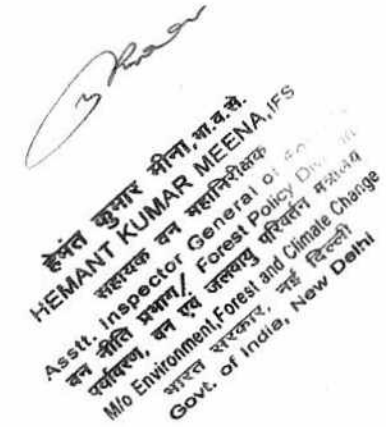 हेमंत कुमार मीना, भा.व.से.
HEMANT KUMAR MEENA, IFS
सहायक वन महानिरीक्षक
Asstt. Inspector General of
वन नीति प्रभाग/ Forest Policy
पर्यावरण, वन एवं जलवायु परिवर्तन मंत्रालय
M/o Environment, Forest and Climate Change
भारत सरकार, नई दिल्ली
Govt. of India, New Delhi